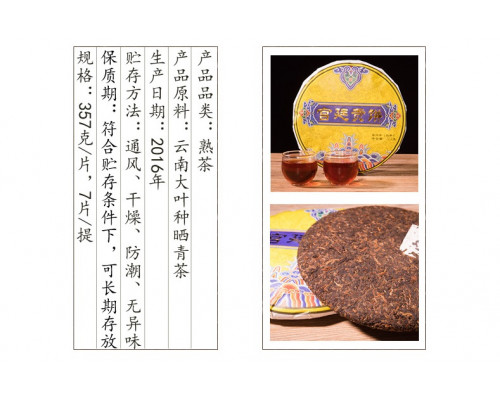 产品品类：熟茶
产品原料：云南大叶种晒青茶
生产日期：2016年
贮存方法：通风、干燥、防潮、无异味
保质期：符合贮存条件下，可长期存放
规格：357克/片，7片/提
宫廷贡饼